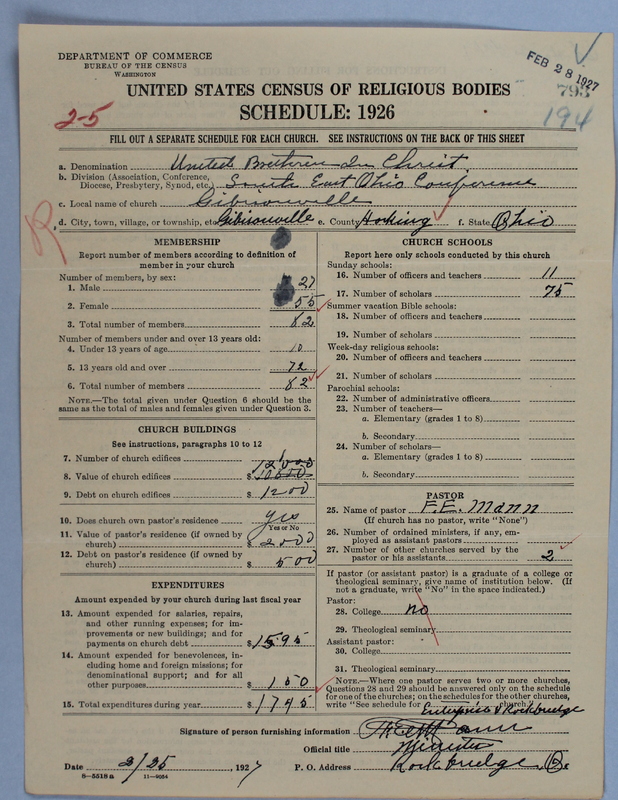 DEPARTMENT OF COMMERCE
BUREAU OF THE CENSUS
WASHINGTON
FEB 28 1927
793
194
2-5
UNITED STATES CENSUS OF RELIGIOUS BODIES
SCHEDULE: 1926
FILL OUT A SEPARATE SCHEDULE FOR EACH CHURCH. SEE INSTRUCTIONS ON THE BACK OF THIS SHEET
a. Denomination United Brethren In Christ
b. Division (Association, Conference,
Diocese, Presbytery, Synod, etc.) South East Ohio Conference
c. Local name of church Gibisonville
d. City, town, village, or township, etc. Gibisonville e. County Hocking f. State Ohio
R
MEMBERSHIP
Report number of members according to definition of
member in your church
Number of members, by sex:
1. Male 27
2. Female 55
3. Total number of members 82
Number of members under and over 13 years old:
4. Under 13 years of age 10
5. 13 years old and over 72
6. Total number of members 82
NOTE.—The total given under Question 6 should be
same as the total of males and females given under Question 3.
CHURCH BUILDINGS
See instructions, paragraphs 10 to 12
7. Number of church edifices 1
12000
8. Value of church edifices $ 10000
9. Debt on church edifices $ 1200
10. Does church own pastor's residence yes
Yes or No
11. Value of pastor's residence (if owned by
church) $ 2000
12. Debt on pastor's residence (if owned by
church) $ 500
EXPENDITURES
Amount expended by your church during last fiscal year
13. Amount expended for salaries, repairs,
and other running expenses; for im-
provements or new buildings; and for
payments on church debt $ 1595
14. Amount expended for benevolences, in-
cluding home and foreign missions; for
denominational support; and for all
other purposes $ 150
15. Total expenditures during year $ 1745
CHURCH SCHOOLS
Report here only schools conducted by this church
Sunday schools:
16. Number of officers and teachers 11
17. Number of scholars 75
Summer vacation Bible schools:
18. Number of officers and teachers
19. Number of scholars
Week-day religious schools:
20. Number of officers and teachers
21. Number of scholars
Parochial schools:
22. Number of administrative officers
23. Number of teachers—
a. Elementary (grades 1 to 8)
b. Secondary
24. Number of scholars—
a. Elementary (grades 1 to 8)
b. Secondary
PASTOR
25. Name of pastor F.E. Mann
(If church has no pastor, write "None")
26. Number of ordained ministers, if any, em-
ployed as assistant pastors
27. Number of other churches served by the
pastor or his assistants 2
If pastor (or assistant pastor) is a graduate of a college or
theological seminary, give name of institution below. (If
not a graduate, write "No" in the space indicated.)
Pastor:
28. College no
29. Theological seminary
Assistant pastor:
30. College
31. Theological seminary
NOTE.—Where one pastor serves two or more churches,
Questions 28 and 29 should be answered only on the schedule
for one of the churches; on the schedules for the other churches,
write "See schedule for Enterprise & Rockbridge church."
Signature of person furnishing information F. E. Mann
Official title Minister
Date 2/25 1927 P. O. Address Rockbridge, O
8—5518a 11—9054